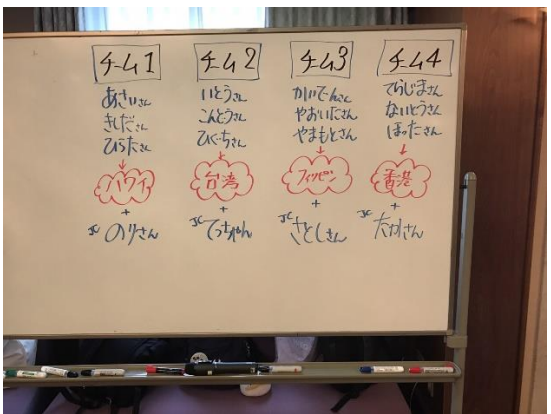 チーム1
あさいさん
きしださん
ひらたさん
ハワイ
+
JC のりさん
チーム2
いとうさん
こんどうさん
ひぐちさん
台湾
+
JC てっちゃん
チーム3
かいでんさん
やおいたさん
やまもとさん
フィリピン
+
JC さとしさん
チーム4
てらじまさん
ないとうさん
ほったさん
香港
+
JC たかさん